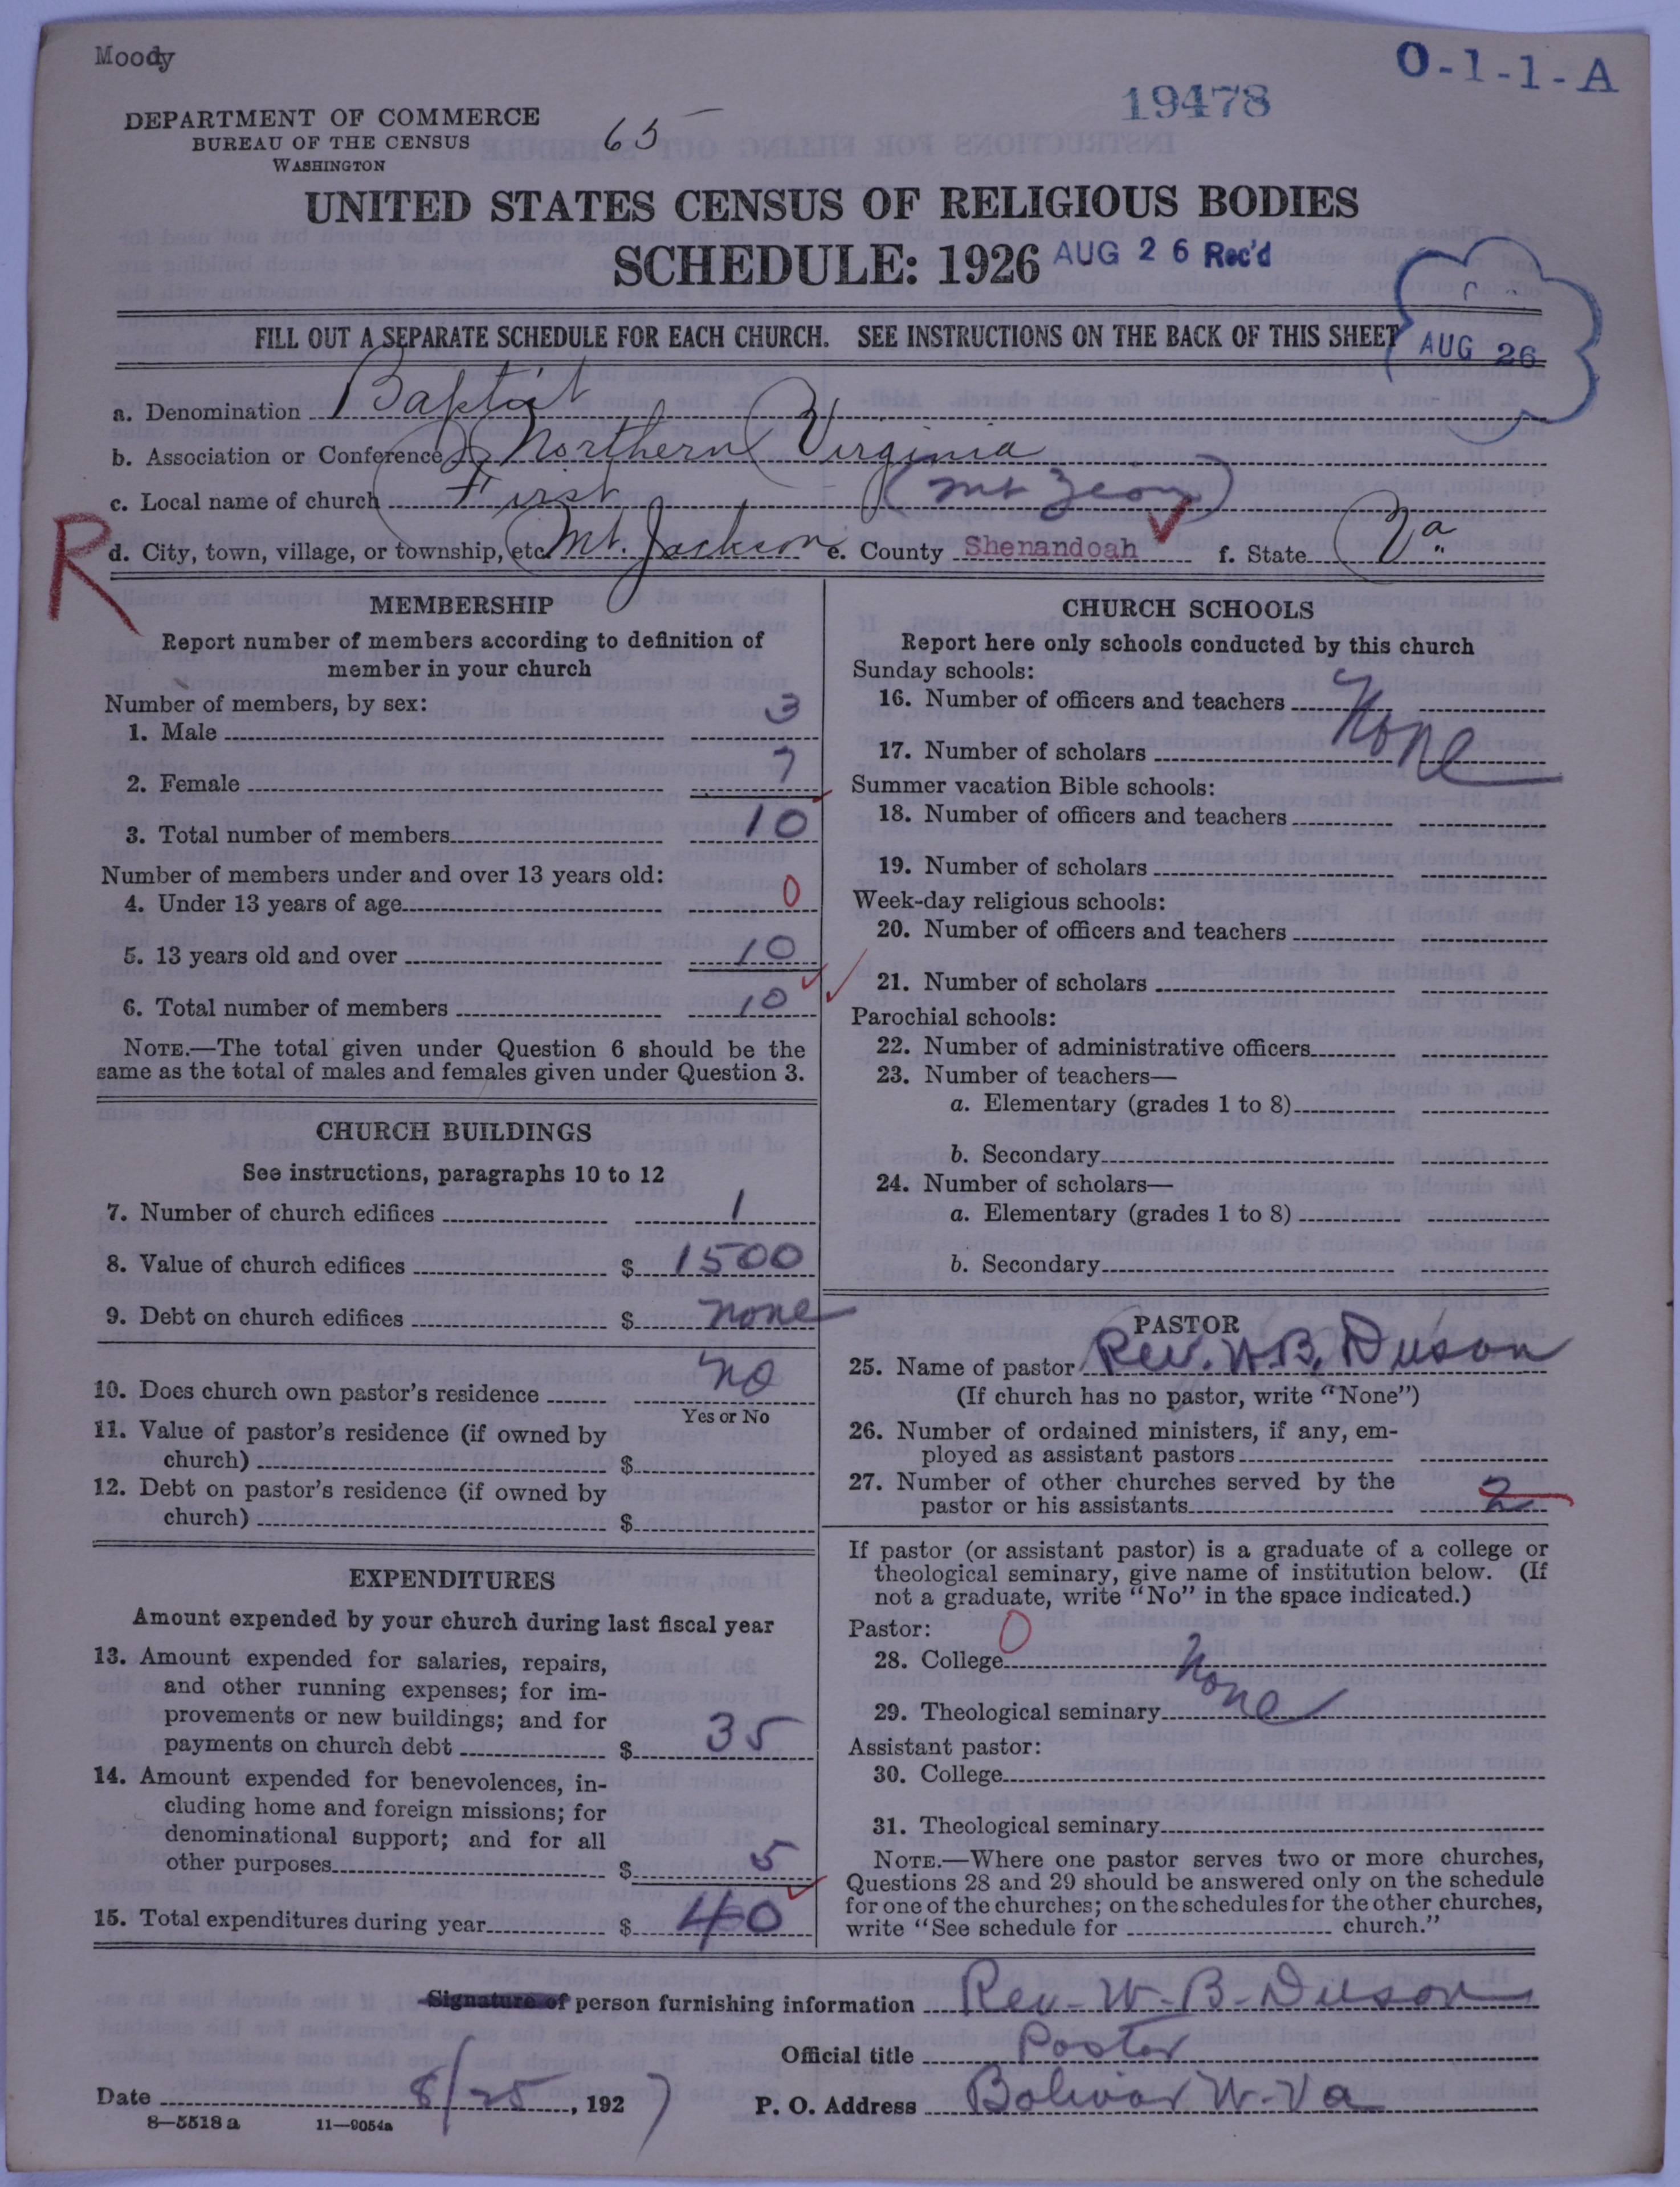 Moody
O-1-1-A
19478
DEPARTMENT OF COMMERCE
BUREAU OF THE CENSUS
WASHINGTON
65
UNITED STATES CENSUS OF RELIGIOUS BODIES
SCHEDULE: 1926
AUG 26 Rec'd
FILL OUT A SEPARATE SCHEDULE FOR EACH CHURCH. SEE INSTRUCTIONS ON THE BACK OF THIS SHEET
AUG 26
a. Denomination Baptist
b. Association or Conference Northern Virginia
c. Local name of church First (Mt Zeon)
R
d. City, town, village, or township, etc. Mt. Jackson e. County Shenandoah f. State Va.
MEMBERSHIP
Report number of members according to definition of
member in your church
Number of members, by sex:
1. Male 3
2. Female 7
3. Total number of members 10
Number of members under and over 13 years old:
4. Under 13 years of age 0
5. 13 years old and over 10
6. Total number of members 10
NOTE.—The total given under Question 6 should be the
same as the total of males and females given under Question 3.
CHURCH BUILDINGS
See instructions, paragraphs 10 to 12
7. Number of church edifices 1
8. Value of church edifices $ 1500
9. Debt on church edifices $ none
10. Does church own pastor's residence no
Yes or No
11. Value of pastor's residence (if owned by
church) $
12. Debt on pastor's residence (if owned by
church) $
EXPENDITURES
Amount expended by your church during last fiscal year
13. Amount expended for salaries, repairs,
and other running expenses; for im-
provements or new buildings; and for
payments on church debt $ 35
14. Amount expended for benevolences, in-
cluding home and foreign missions; for
denominational support; and for all
other purposes $ 5
15. Total expenditures during year $ 40
CHURCH SCHOOLS
Report here only schools conducted by this church
Sunday schools:
16. Number of officers and teachers None
17. Number of scholars
Summer vacation Bible schools:
18. Number of officers and teachers
19. Number of scholars
Week-day religious schools:
20. Number of officers and teachers
21. Number of scholars
Parochial schools:
22. Number of administrative officers
23. Number of teachers—
a. Elementary (grades 1 to 8)
b. Secondary
24. Number of scholars—
a. Elementary (grades 1 to 8)
b. Secondary
PASTOR
25. Name of pastor Rev. W. B. Duson
(If church has no pastor, write "None")
26. Number of ordained ministers, if any, em-
ployed as assistant pastors
27. Number of other churches served by the
pastor or his assistants 2
If pastor (or assistant pastor) is a graduate of a college or
theological seminary, give name of institution below. (If
not a graduate, write "No" in the space indicated.)
Pastor: 0
28. College None
29. Theological seminary
Assistant pastor:
30. College
31. Theological seminary
NOTE.—Where one pastor serves two or more churches,
Questions 28 and 29 should be answered only on the schedule
for one of the churches; on the schedules for the other churches,
write "See schedule for church."
Signature of person furnishing information Rev-W-B-Duson
Official title Pastor
Date 8/25, 1927 P. O. Address Bolivar W-Va
8-5518 a 11-9054a